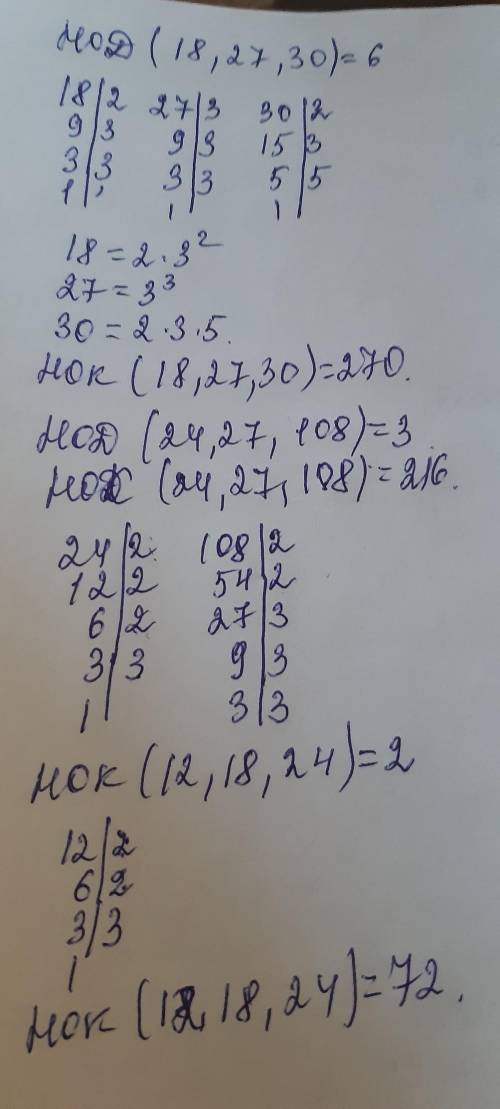 НОД (18,27,30)=6
18|2 27|3 30|2
9|3 9|3 15|3
3|3 3|3 5|5
1| 1 1|
18=2·3²
27=3³
30=2·3·5.
НОК (18,27,30)=270.
НОД (24,27,108)=3
НОК (24,27,108)=216.
24|2 108|2
12|2 54|2
6|2 27|3
3|3 9|3
1| 3|3
НОК (12,18,24)=2
12|2
6|2
3|3
1
НОК (12,18,24)=72.